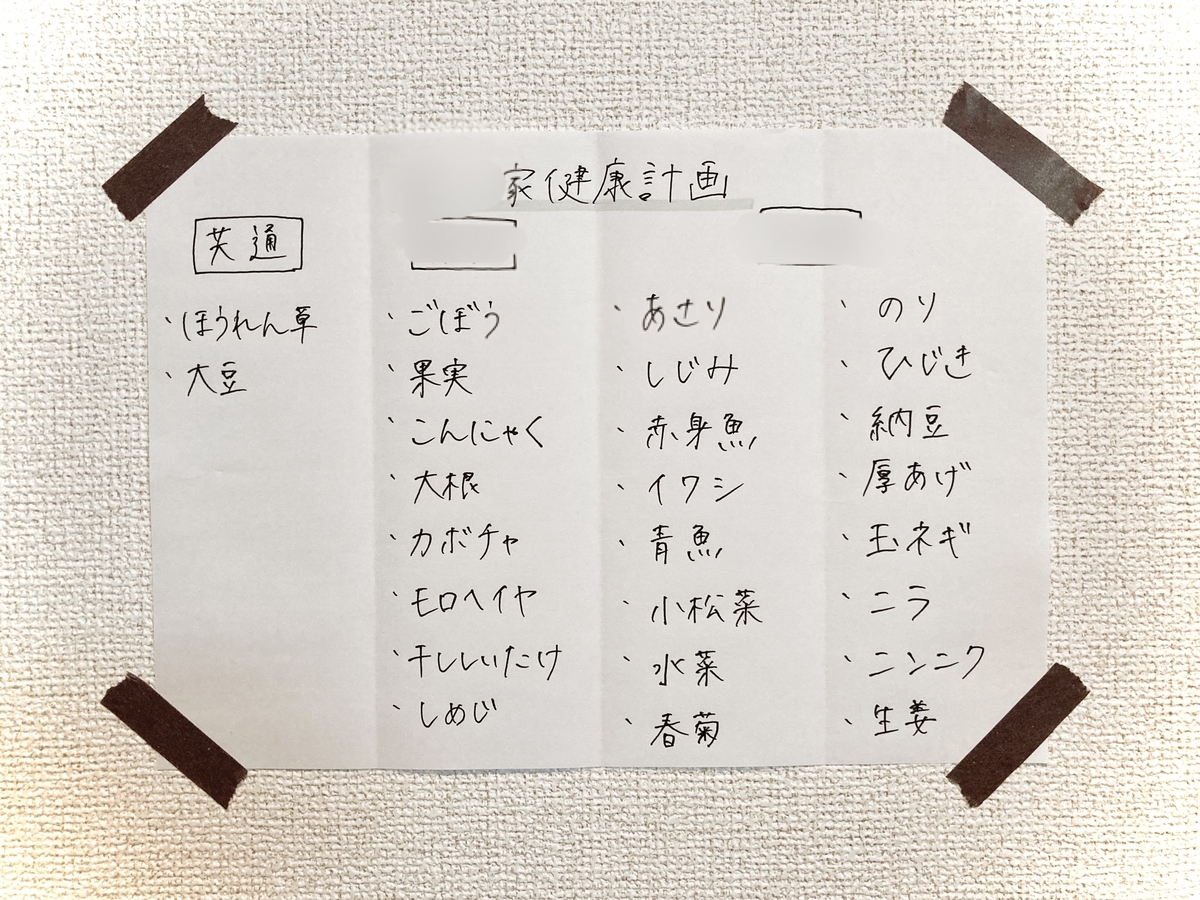 家健康計画
共通
・ほうれん草
・大豆
・ごぼう
・果実
・こんにゃく
・大根
・カボチャ
・モロヘイヤ
・干ししいたけ
・しめじ
・あさり
・しじみ
・赤身魚
・イワシ
・青魚
・小松菜
・水菜
・春菊
・のり
・ひじき
・納豆
・厚あげ
・玉ネギ
・ニラ
・ニンニク
・生姜